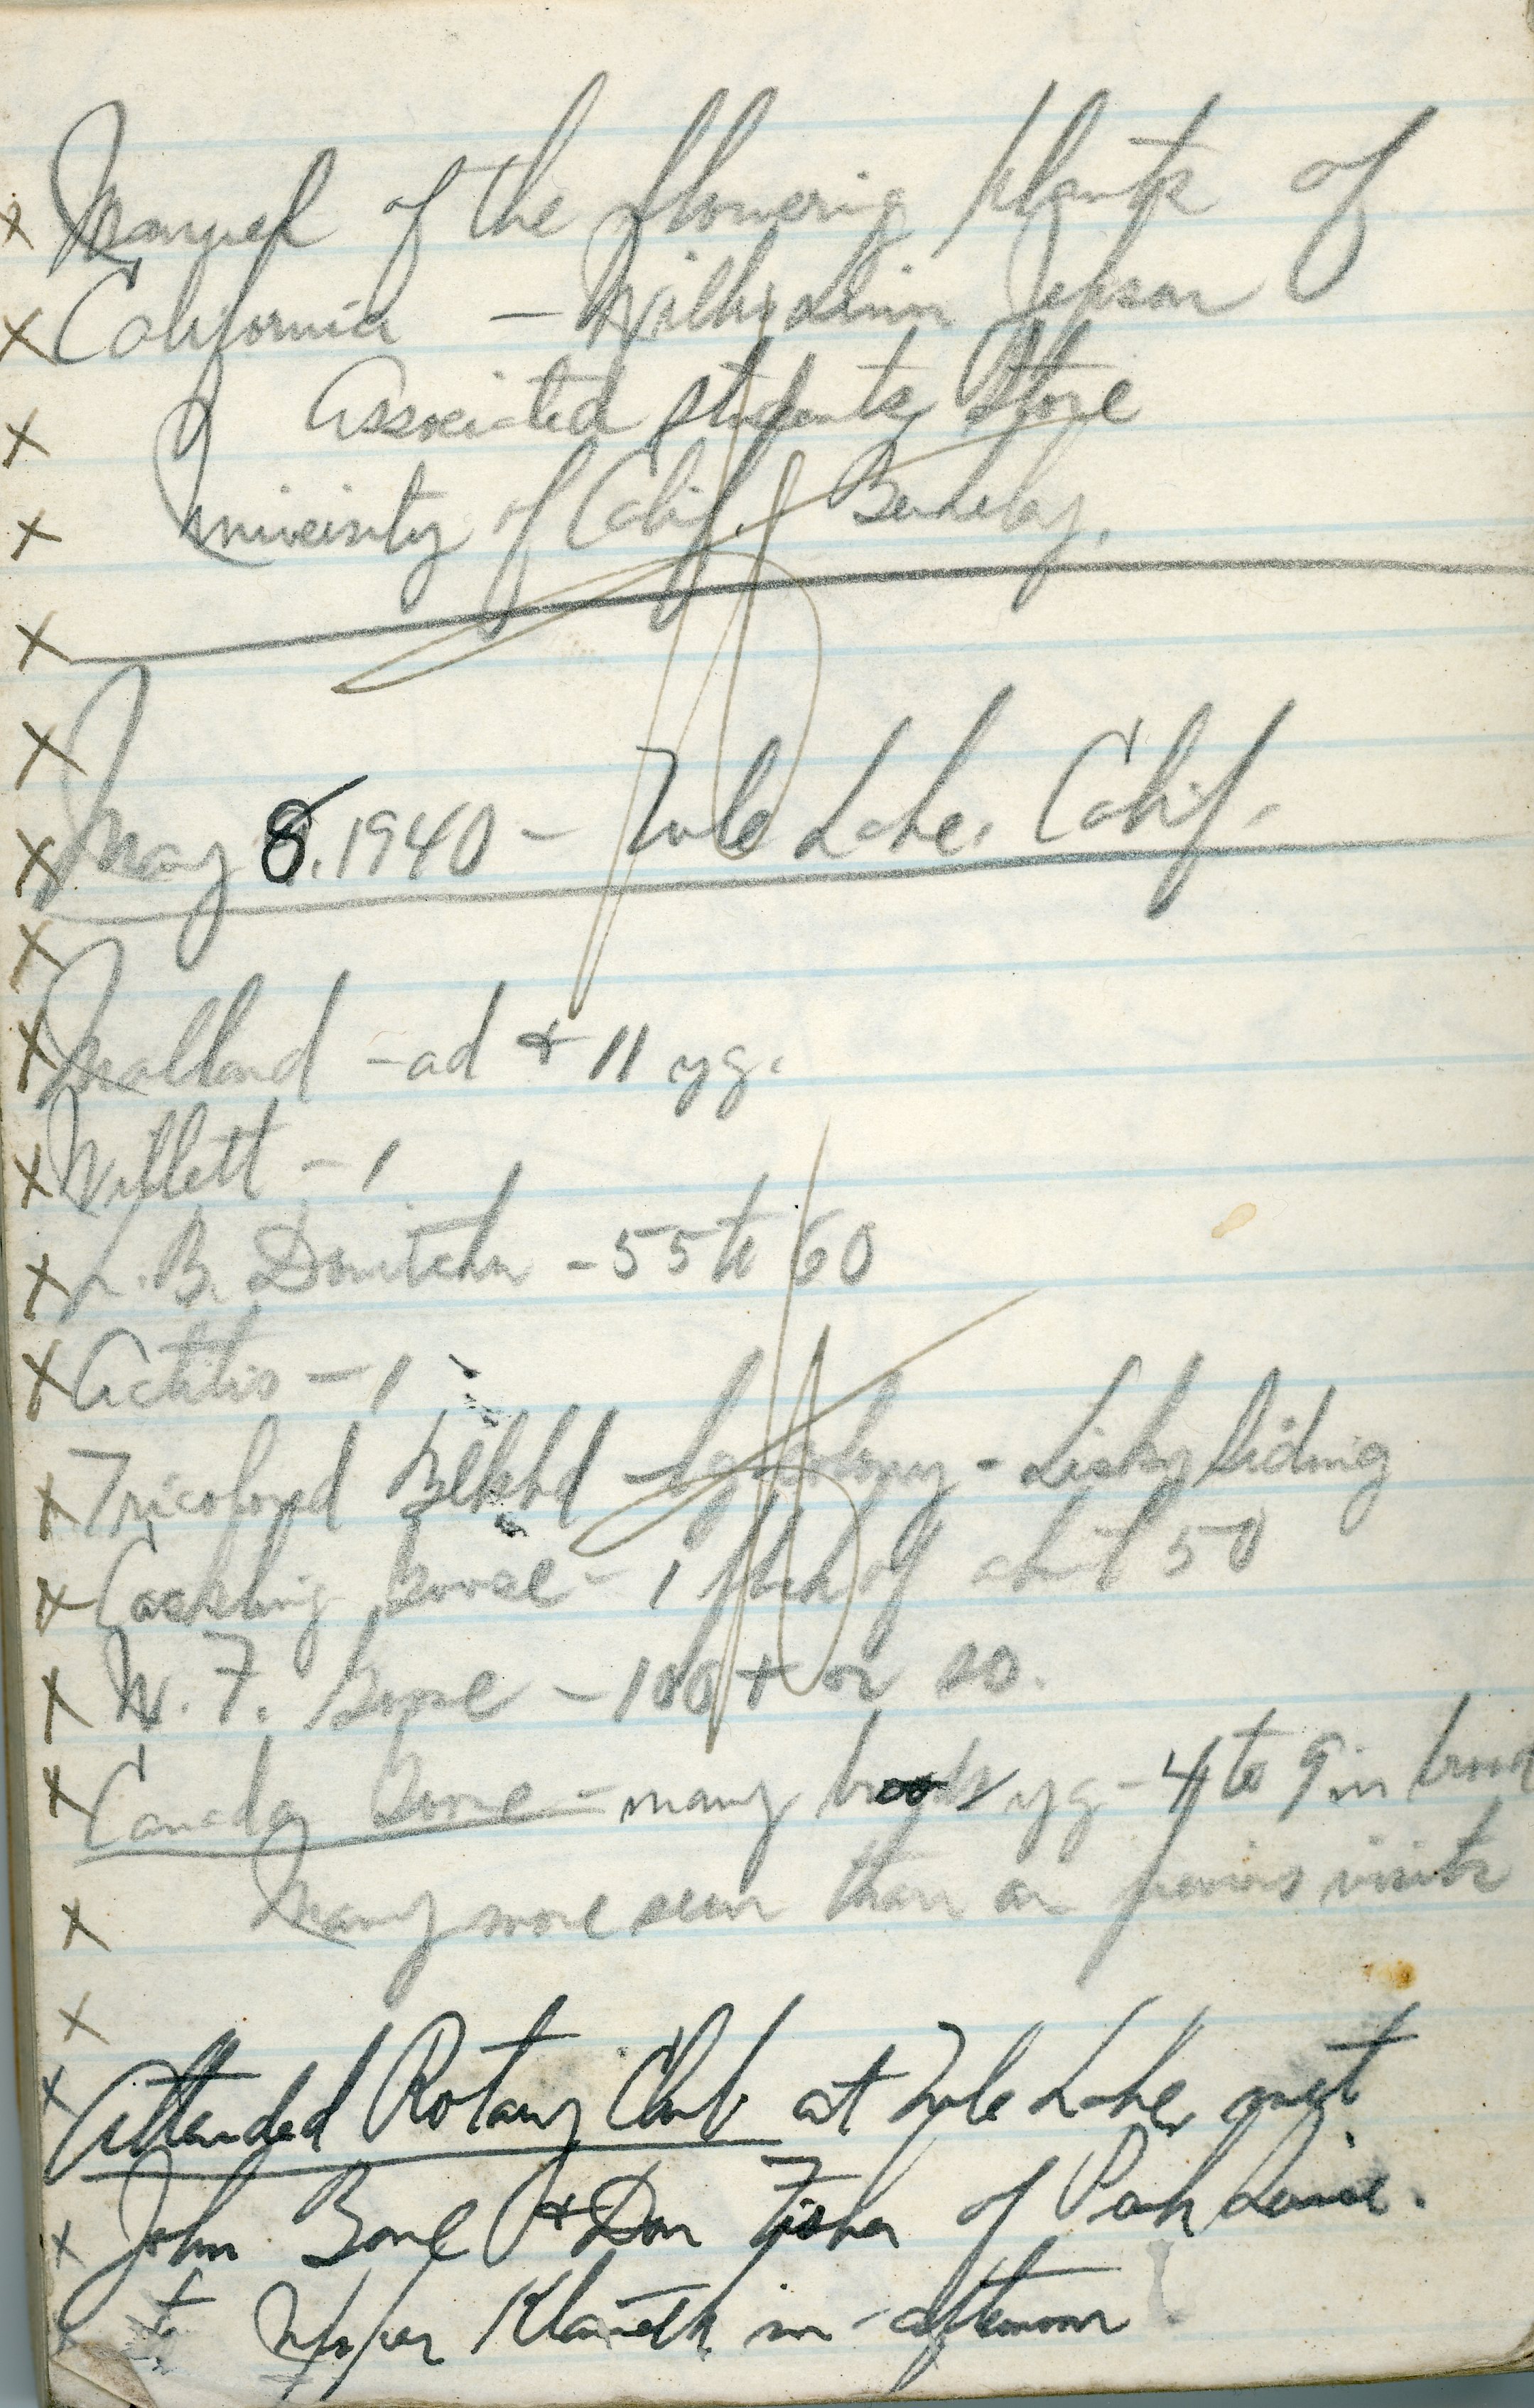 Manual of the flowering plants of
California - Willis Linn Jepson
Associated Students Store
University of Calif. Berkeley.
May 8, 1940 - Tule Lake, Calif.
Mallard - ad + 11 yg.
Willett - 1
L. B. Dowitcher - 55 to 60
Actitis - 1
Tricolored Blkbd - lg colony - Lisky Siding
Cackling Goose - 1 flock of abt 50
W. F. Goose - 100 + or so.
Canada Goose - many broods yg - 4 to 9 in brood
Many more seen than on previous visits
Attended Rotary Club at Tule Lake, met
John Bone + Don Fisher of Park Service.
to Upper Klamath in afternoon